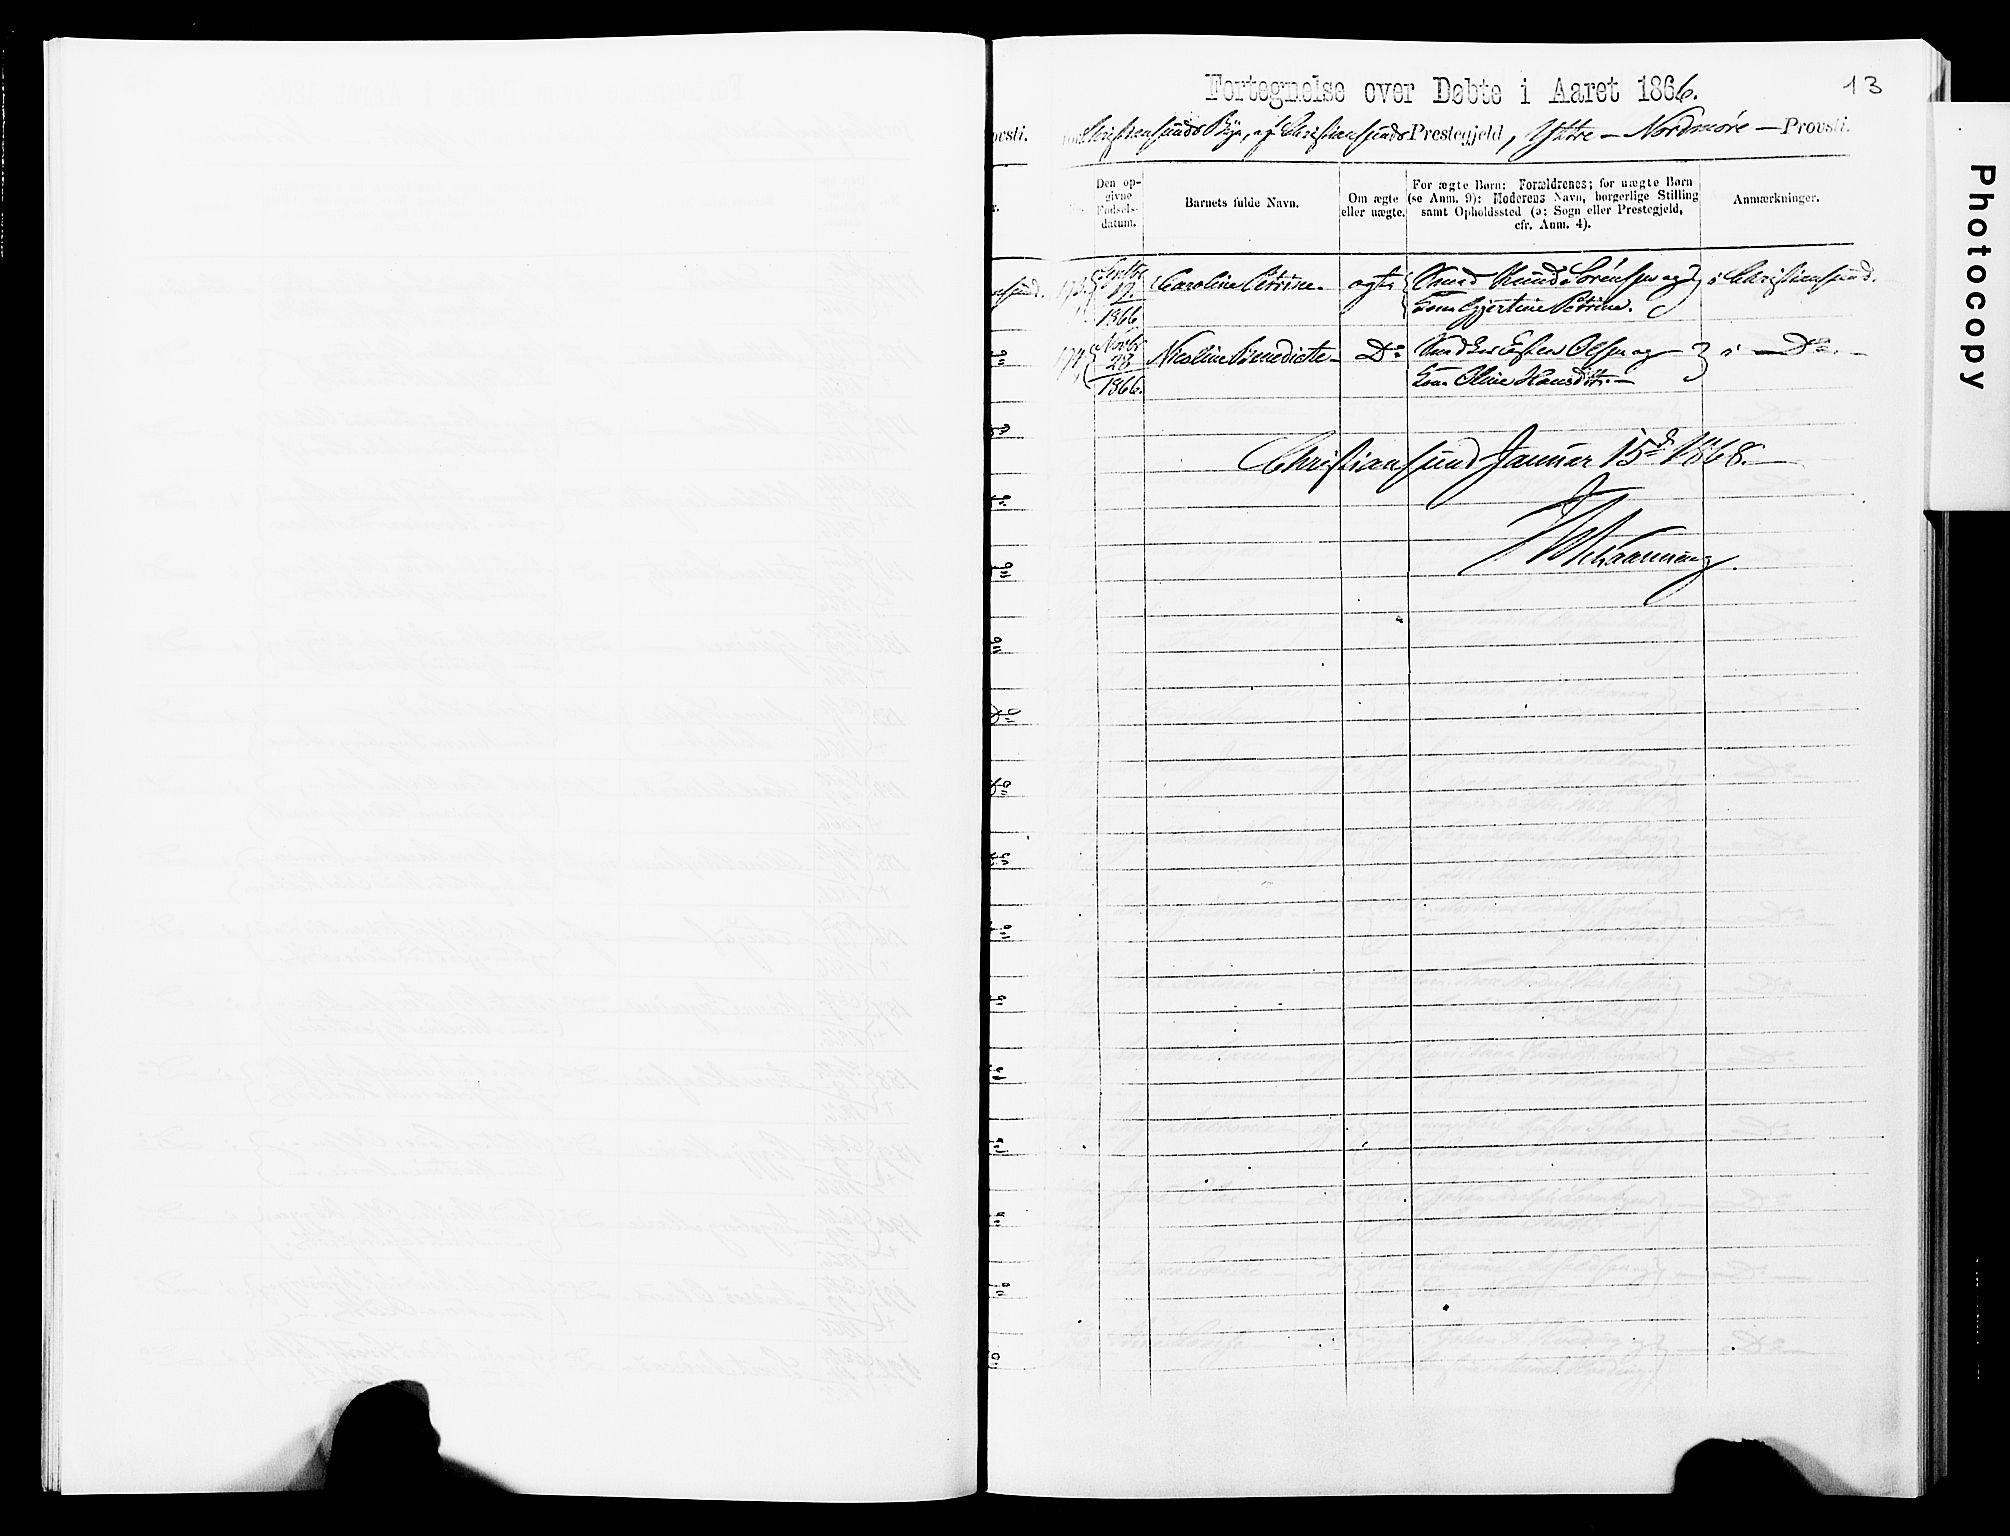 Fortegnelse over Døbte i Aaret 1866.
13
Christiansunds Bye, af Christiansunds Prestegjeld, Yttre - Nordmøre - Provsti.
ovsti.
Den opgivne Fødselsdatum.
Barnets fulde Navn.
Om ægte eller uægte.
For ægte Børn: Forældrenes; for uægte Børn (se Anm. 9): Moderens Navn, borgerlige Stilling samt Opholdssted (ɔ: Sogn eller Prestegjeld, cfr. Anm. 4).
Anmærkninger.
173. Septbr 19. 1866 Caroline Petrine. ægte Smed Knud Sørensen og Kone Gjertine Petrine. i Christiansund.
174. Novbr 28 1866. Nicoline Benedicte - Do Esten Olsen og Kone Oline Hansdtr. - i - Do. -
Christiansund Januar 15de 1868. -
Photocopy